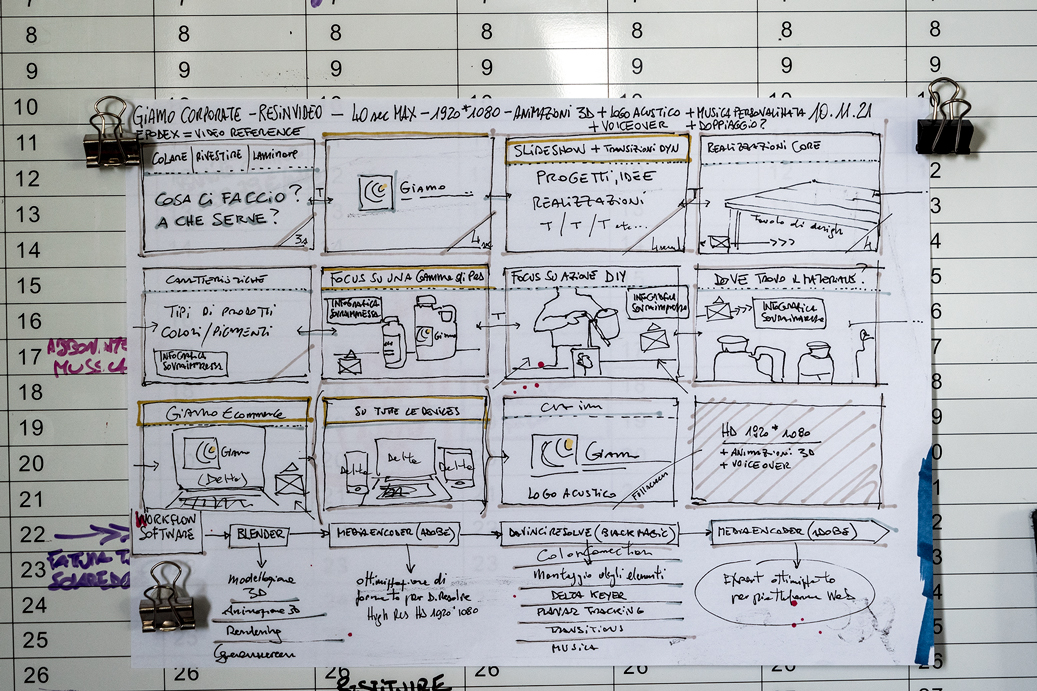 GIAMO CORPORATE - RESINVIDEO - 40 sec MAX - 1920*1080 - ANIMAZIONI 3D + LOGO ACUSTICO + MUSICA PERSONALIZZATA 10.11.21
EPODEX = VIDEO REFERENCE
+ VOICEOVER + DOPPIAGGIO?
COLARE | RIVESTIRE | LAMINARE
COSA CI FACCIO?
A CHE SERVE?
3s
T
Giamo
SLIDESHOW + TRANSIZIONI DYN
PROGETTI, IDEE
REALIZZAZIONI
T / T / T etc...
T
REALIZZAZIONI CORE
Tavolo di design
4
CARATTERISTICHE
TIPI DI PRODOTTI
COLORI/PIGMENTI
INFOGRAFICA
SOVRAIMPRESSA
FOCUS SU UNA GAMMA di PRD
INFOGRAFICA
SOVRAIMPRESSA
Giamo
T
FOCUS SU AZIONE DIY
INFOGRAFICA
SOVRAIMPRESSA
DOVE TROVO IL MATERIALE?
INFOGRAFICA
SOVRAIMPRESSA
GIAMO ECOMMERCE
Giamo
(Delta)
SU TUTTE LE DEVICES
Delta
Delta
Delta
Giamo
LOGO ACUSTICO
Fullscreen
HD 1920*1080
+ ANIMAZIONI 3D
+ VOICEOVER
WORKFLOW
SOFTWARE
BLENDER
MEDIA ENCODER (ADOBE)
DAVINCI RESOLVE (BLACKMAGIC)
MEDIA ENCODER (ADOBE)
Modellazione
3D
Animazione 3D
Rendering
Greenscreen
ottimizzazione di
formato per D.Resolve
High Res HD 1920*1080
Color correction
Montaggio degli elementi
DELTA KEYER
PLANAR TRACKING
TRANSITIONS
MUSICA
Export ottimizzato
per piattaforme Web
MUSICA
8 8 8 8 8
9 9 9 9 9
10
11
12 12
13 13
14 14
15 15
16 16
17 17
18 18
19 19
20 20
21 21
22 22
23 23
24 24
25 25
26 26 26 26 26 26